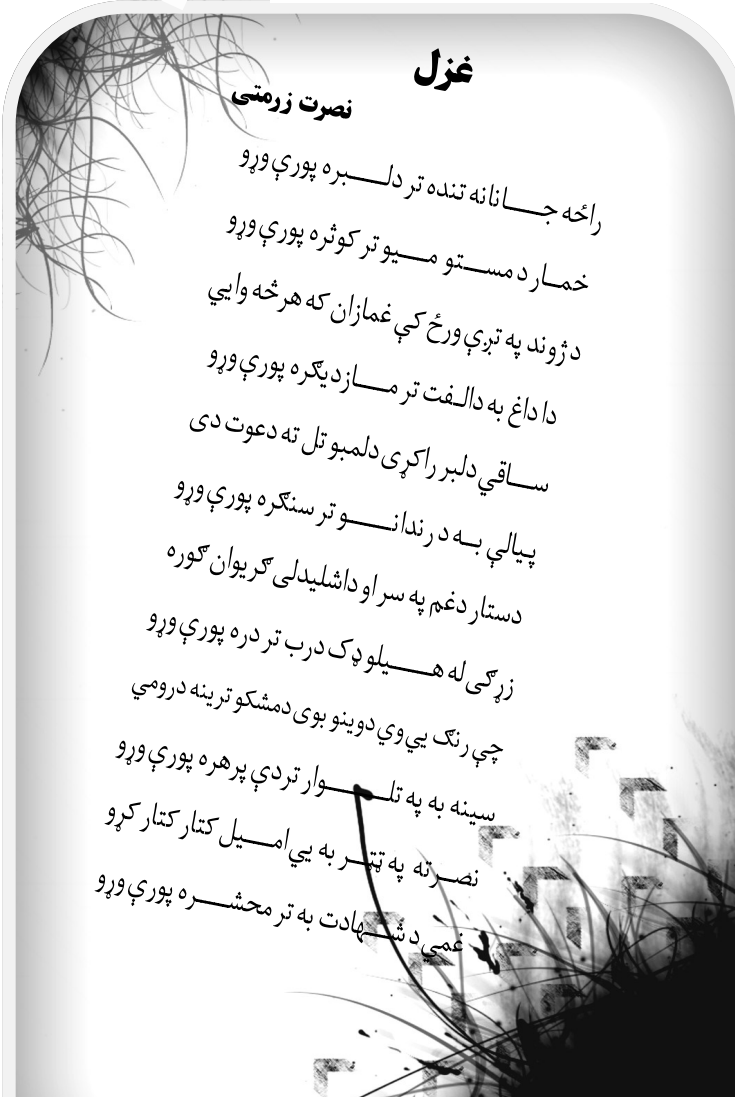 غزل
نصرت زرمتی
راځه جانانه تنده تر دلبره پورې وړو
خمار د مستو میو تر کوثره پورې وړو
د ژوند په تږې ورځ کې غمازان که هرڅه وايي
دا داغ به دالفت تر مازدیګره پورې وړو
ساقي دلبر راکړی دلمبو تل ته دعوت دی
پیالې به د رندانو تر سنګره پورې وړو
دستار دغم په سر او داشلیدلی ګریوان ګوره
زړګی له هیلو ډک درب تر دره پورې وړو
چې رنګ یې وي دوینو بوی دمشکو ترینه درومي
سینه به په تلوار تردې پرهره پورې وړو
نصرته په ټټر به یې امیل کتار کتار کړو
غمي د شهادت به تر محشره پورې وړو